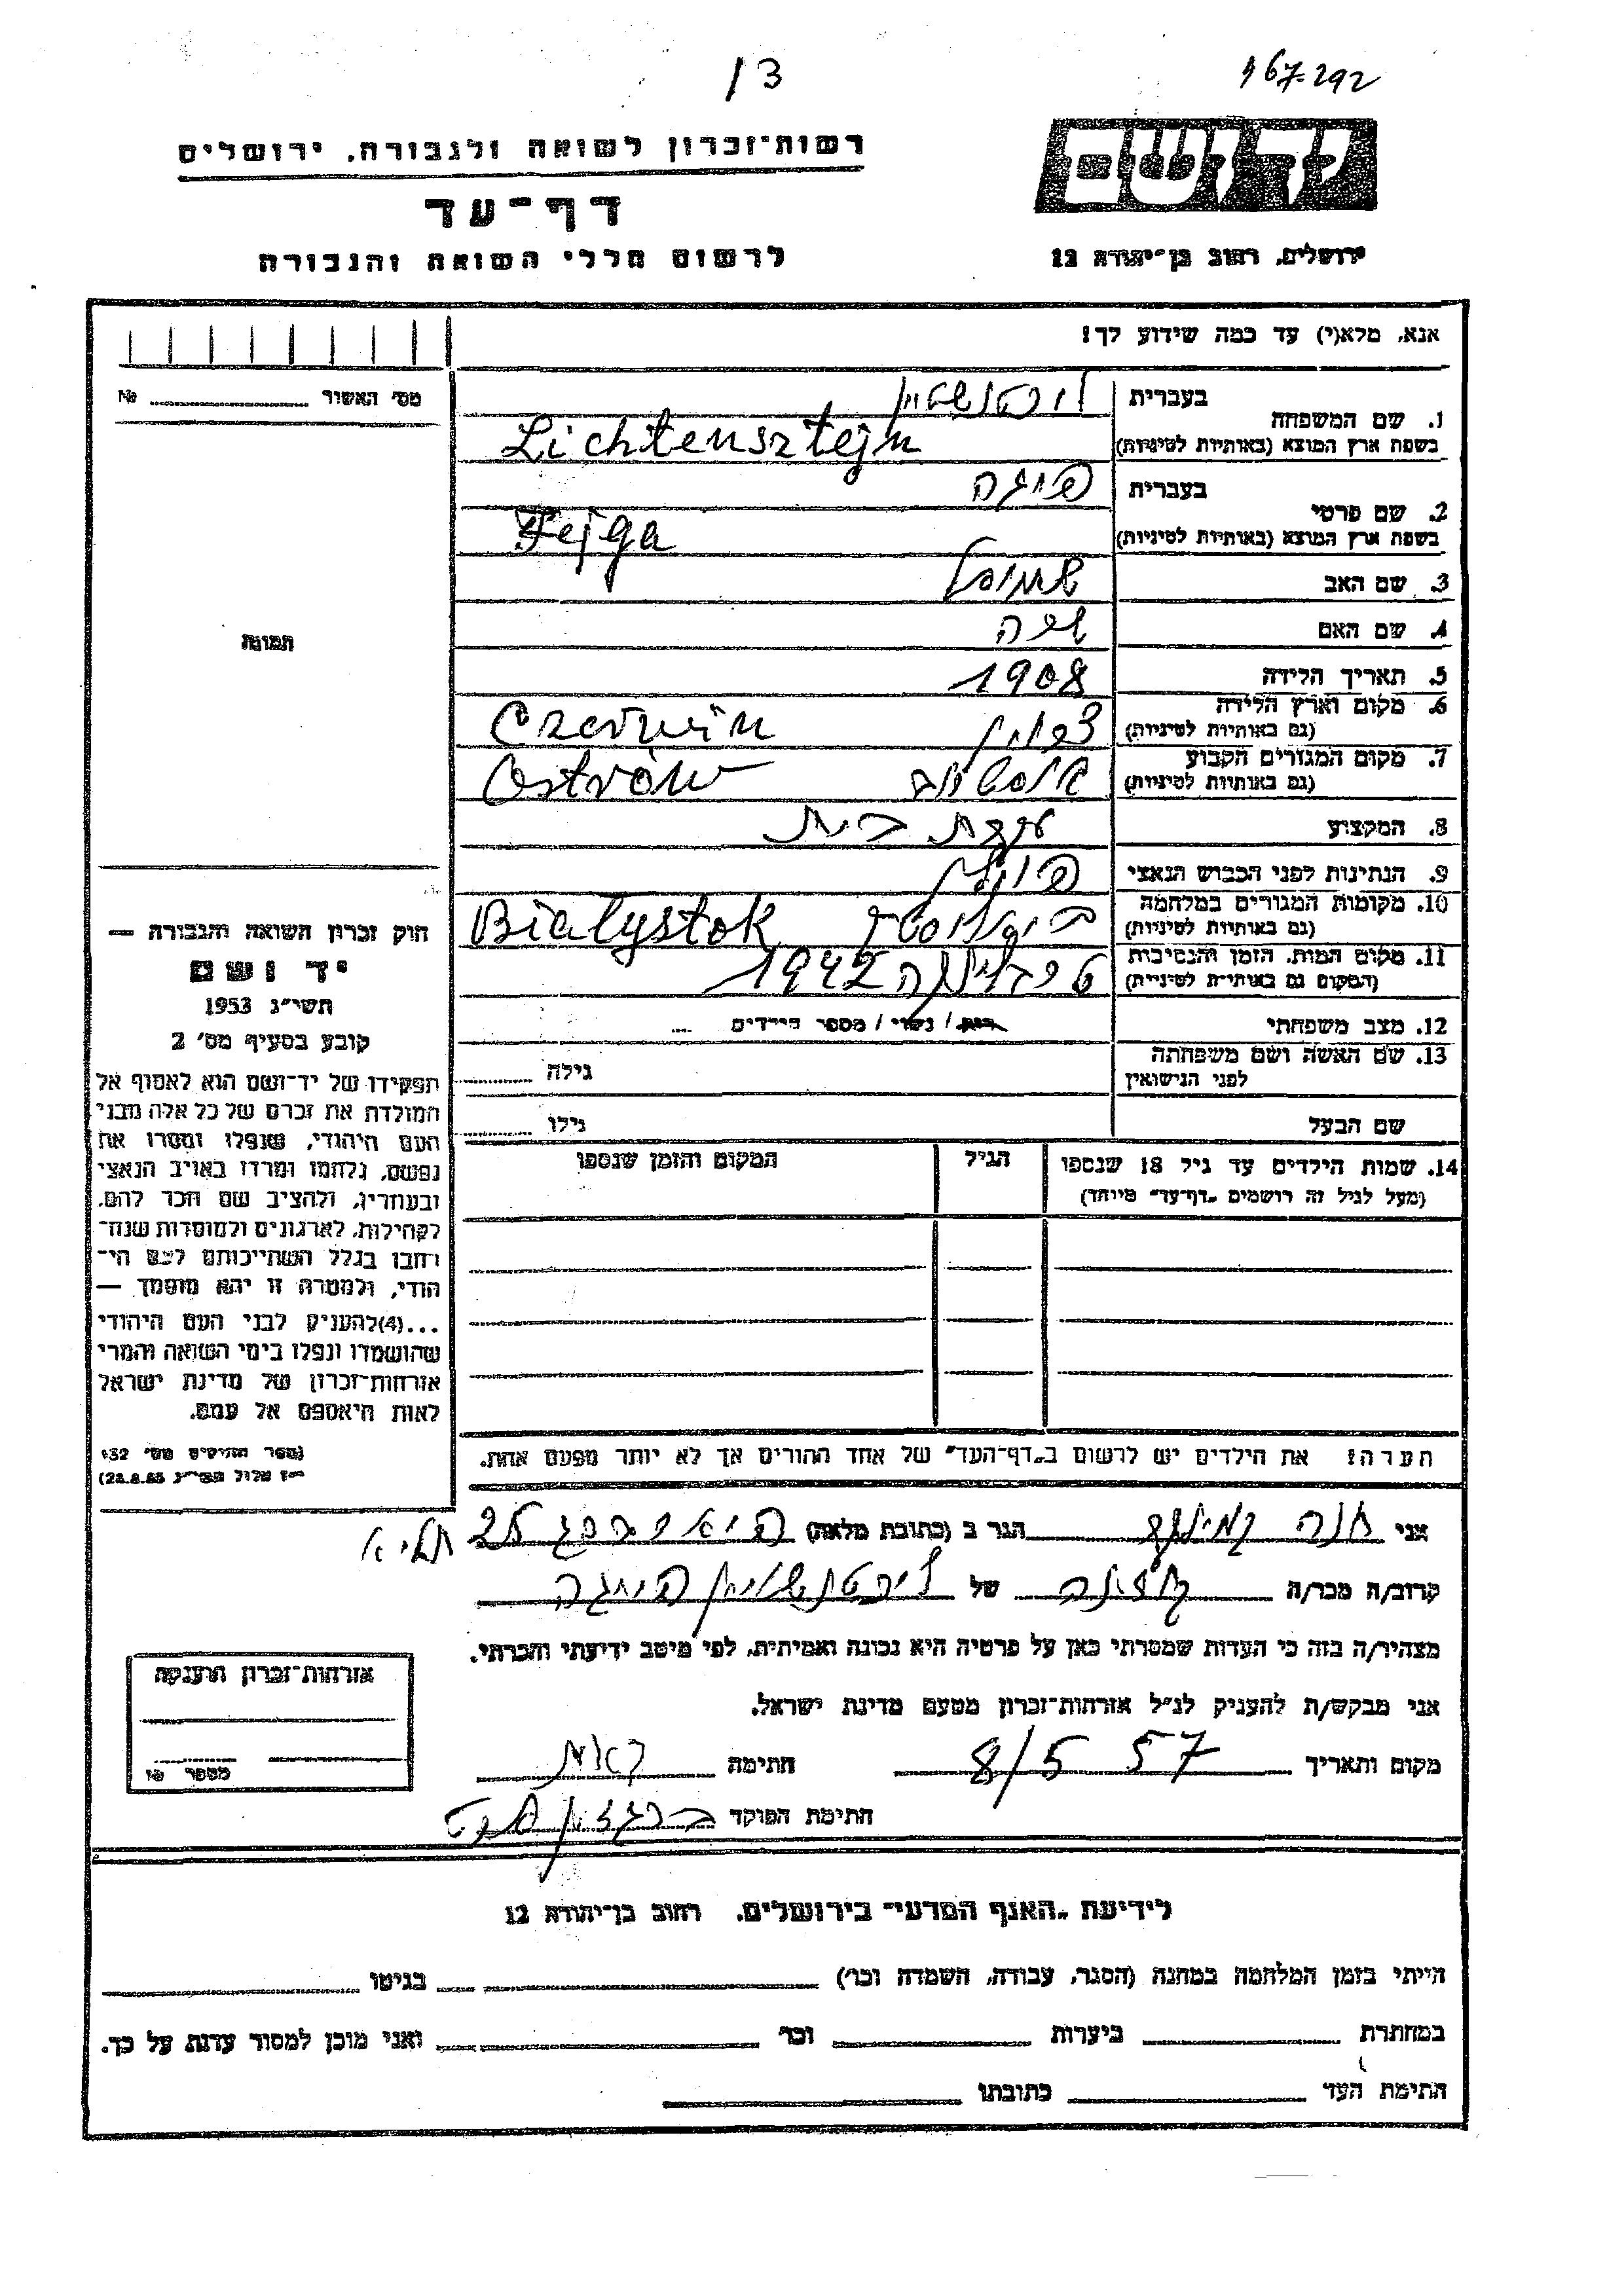 13
167-292
רשות־זכרון לשואה ולגבורה, ירושלים
יד ושם
דף־עד
לרשום חללי השואה והגבורה
ירושלים, רחוב בן־יהודה 12
אנא, מלא(י) עד כמה שידוע לך!
מס׳ האשור № 
1. שם המשפחה
בעברית ליכטנשטיין
בשפת ארץ המוצא (באותיות לטיניות) Lichtensztejn
2. שם פרטי
בעברית פייגה
בשפת ארץ המוצא (באותיות לטיניות) Fejga
3. שם האב שמואל
4. שם האם
תמונה
5. תאריך הלידה 1908
6. מקום וארץ הלידה
(גם באותיות לטיניות) Czerwin
7. מקום המגורים הקבוע
(גם באותיות לטיניות) Ostrów
8. המקצוע עקרת בית
9. הנתינות לפני הכבוש הנאצי פולין
10. מקומות המגורים במלחמה
(גם באותיות לטיניות) ביאליסטוק Bialystok
11. מקום המות, הזמן והנסיבות
(המקום גם באותיות לטיניות) טרבלינקה 1942
12. מצב משפחתי רוק / נשוי / מספר הילדים
13. שם האשה ושם משפחתה
לפני הנישואין
גילה
שם הבעל גילו
14. שמות הילדים עד גיל 18 שנספו הגיל המקום והזמן שנספו
(מעל לגיל זה רושמים „דף־עד״ מיוחד)
הערה! את הילדים יש לרשום ב„דף־העד״ של אחד ההורים אך לא יותר מפעם אחת.
חוק זכרון השואה והגבורה —
יד ושם
תשי״ג 1953
קובע בסעיף מס׳ 2
תפקידו של יד־ושם הוא לאסוף אל
המולדת את זכרם של כל אלה מבני
העם היהודי, שנפלו ומסרו את
נפשם, נלחמו ומרדו באויב הנאצי
ובעוזריו, ולהציב שם וזכר להם,
לקהילות, לארגונים ולמוסדות שנח־
רבו בגלל השתייכותם לעם הי־
הודי, ולמטרה זו יהא מוסמך —
...(4)להעניק לבני העם היהודי
שהושמדו ונפלו בימי השואה והמרי
אזרחות־זכרון של מדינת ישראל
לאות היאספם אל עמם.
(ספר החוקים מס׳ 132
אני חנה הגר ב (כתובת מלאה) 25
קרוב/ה מכר/ה של ליכטנשטיין פייגה
מצהיר/ה בזה כי העדות שמסרתי כאן על פרטיה היא נכונה ואמיתית, לפי מיטב ידיעתי והכרתי.
אני מבקש/ת להעניק לנ״ל אזרחות־זכרון מטעם מדינת ישראל.
מקום ותאריך 8/5 57 חתימה
חתימת הפוקד
אזרחות־זכרון הוענקה
מספר
לידיעת „האגף המדעי״ בירושלים, רחוב בן־יהודה 12
הייתי בזמן המלחמה במחנה (הסגר, עבודה, השמדה וכו׳) בגיטו
במחתרת ביערות וכו׳ ואני מוכן למסור עדות על כך.
חתימת העד כתובתו